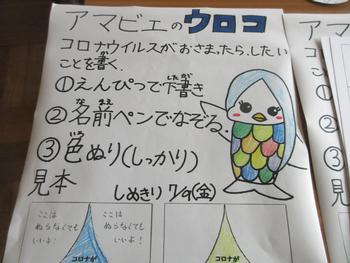 アマビエのウロコ
コロナウイルスがおさまったら、したい
ことを書く。
①えんぴつで下書き
②名前ペンでなぞる
③色ぬり(しっかり)
見本
しめきり 7/9(金)
ここは
ぬらなくても
いいよ!
ここは
ぬらなくても
いいよ!
コロナが
コロナが
アマ
コロ
こと
①
②
③
見